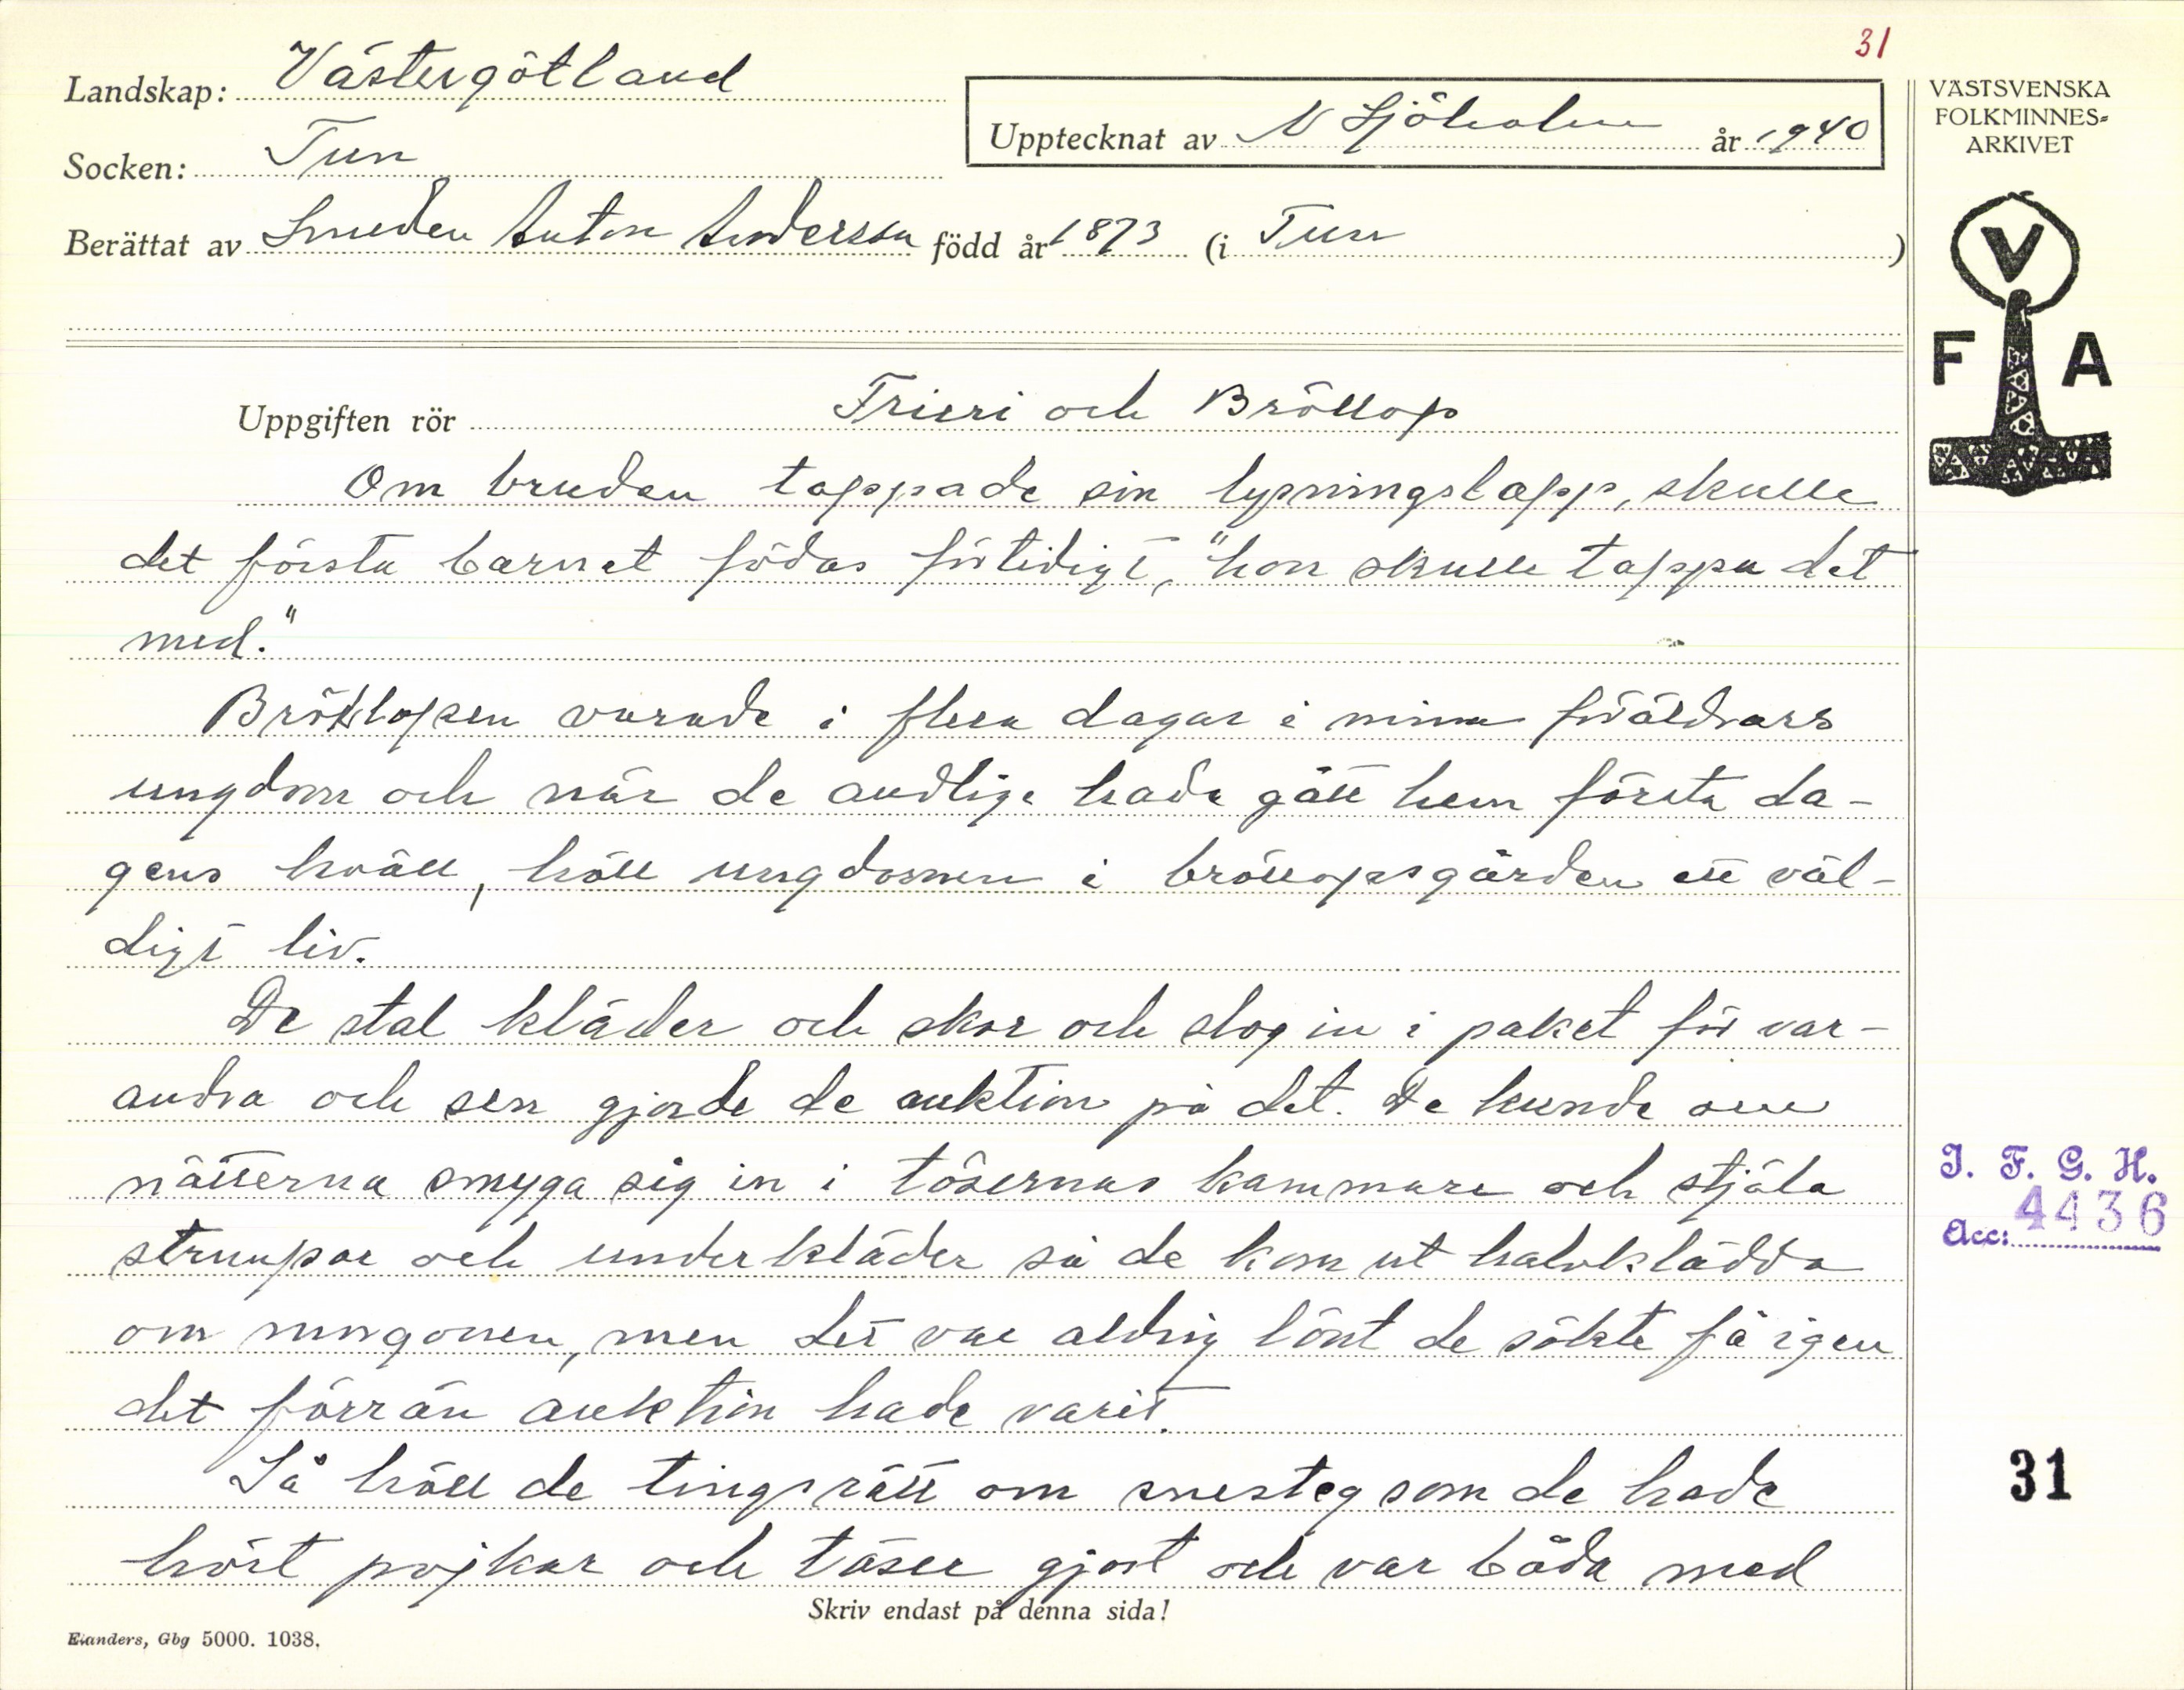 31
Landskap: Västergötland
Socken: Tun
Upptecknat av N Sjöholm år 1940
Berättat av Smeden Anton Andersson född år 1873 (i Tun )
VÄSTSVENSKA
FOLKMINNES=
ARKIVET
V
F A
Uppgiften rör Frieri och Bröllop
Om bruden tappade sin lysningslapp, skulle
det första barnet födas förtidigt, "hon skulle tappa det
med."
Bröllopen varade i flera dagar i mina föräldrars
ungdom och när de andlige hade gått hem första da-
gens kväll, höll ungdomen i bröllopsgården ett väl-
digt liv.
De stal kläder och skor och slog in i paket för var-
andra och sen gjorde de auktion på det. De kunde om
nätterna smyga sig in i tösernas kammare och stjäla
strumpor och underkläder så de kom ut halvklädda
om morgonen, men det var aldrig lönt de sökte få igen
det förrän auktion hade varit.
Så höll de tingsrätt om snesteg som de hade
hört pojkar och töser gjort och var båda med
Skriv endast på denna sida!
Elanders, Gbg 5000. 1038.
I. F. G. H.
Acc: 4436
31